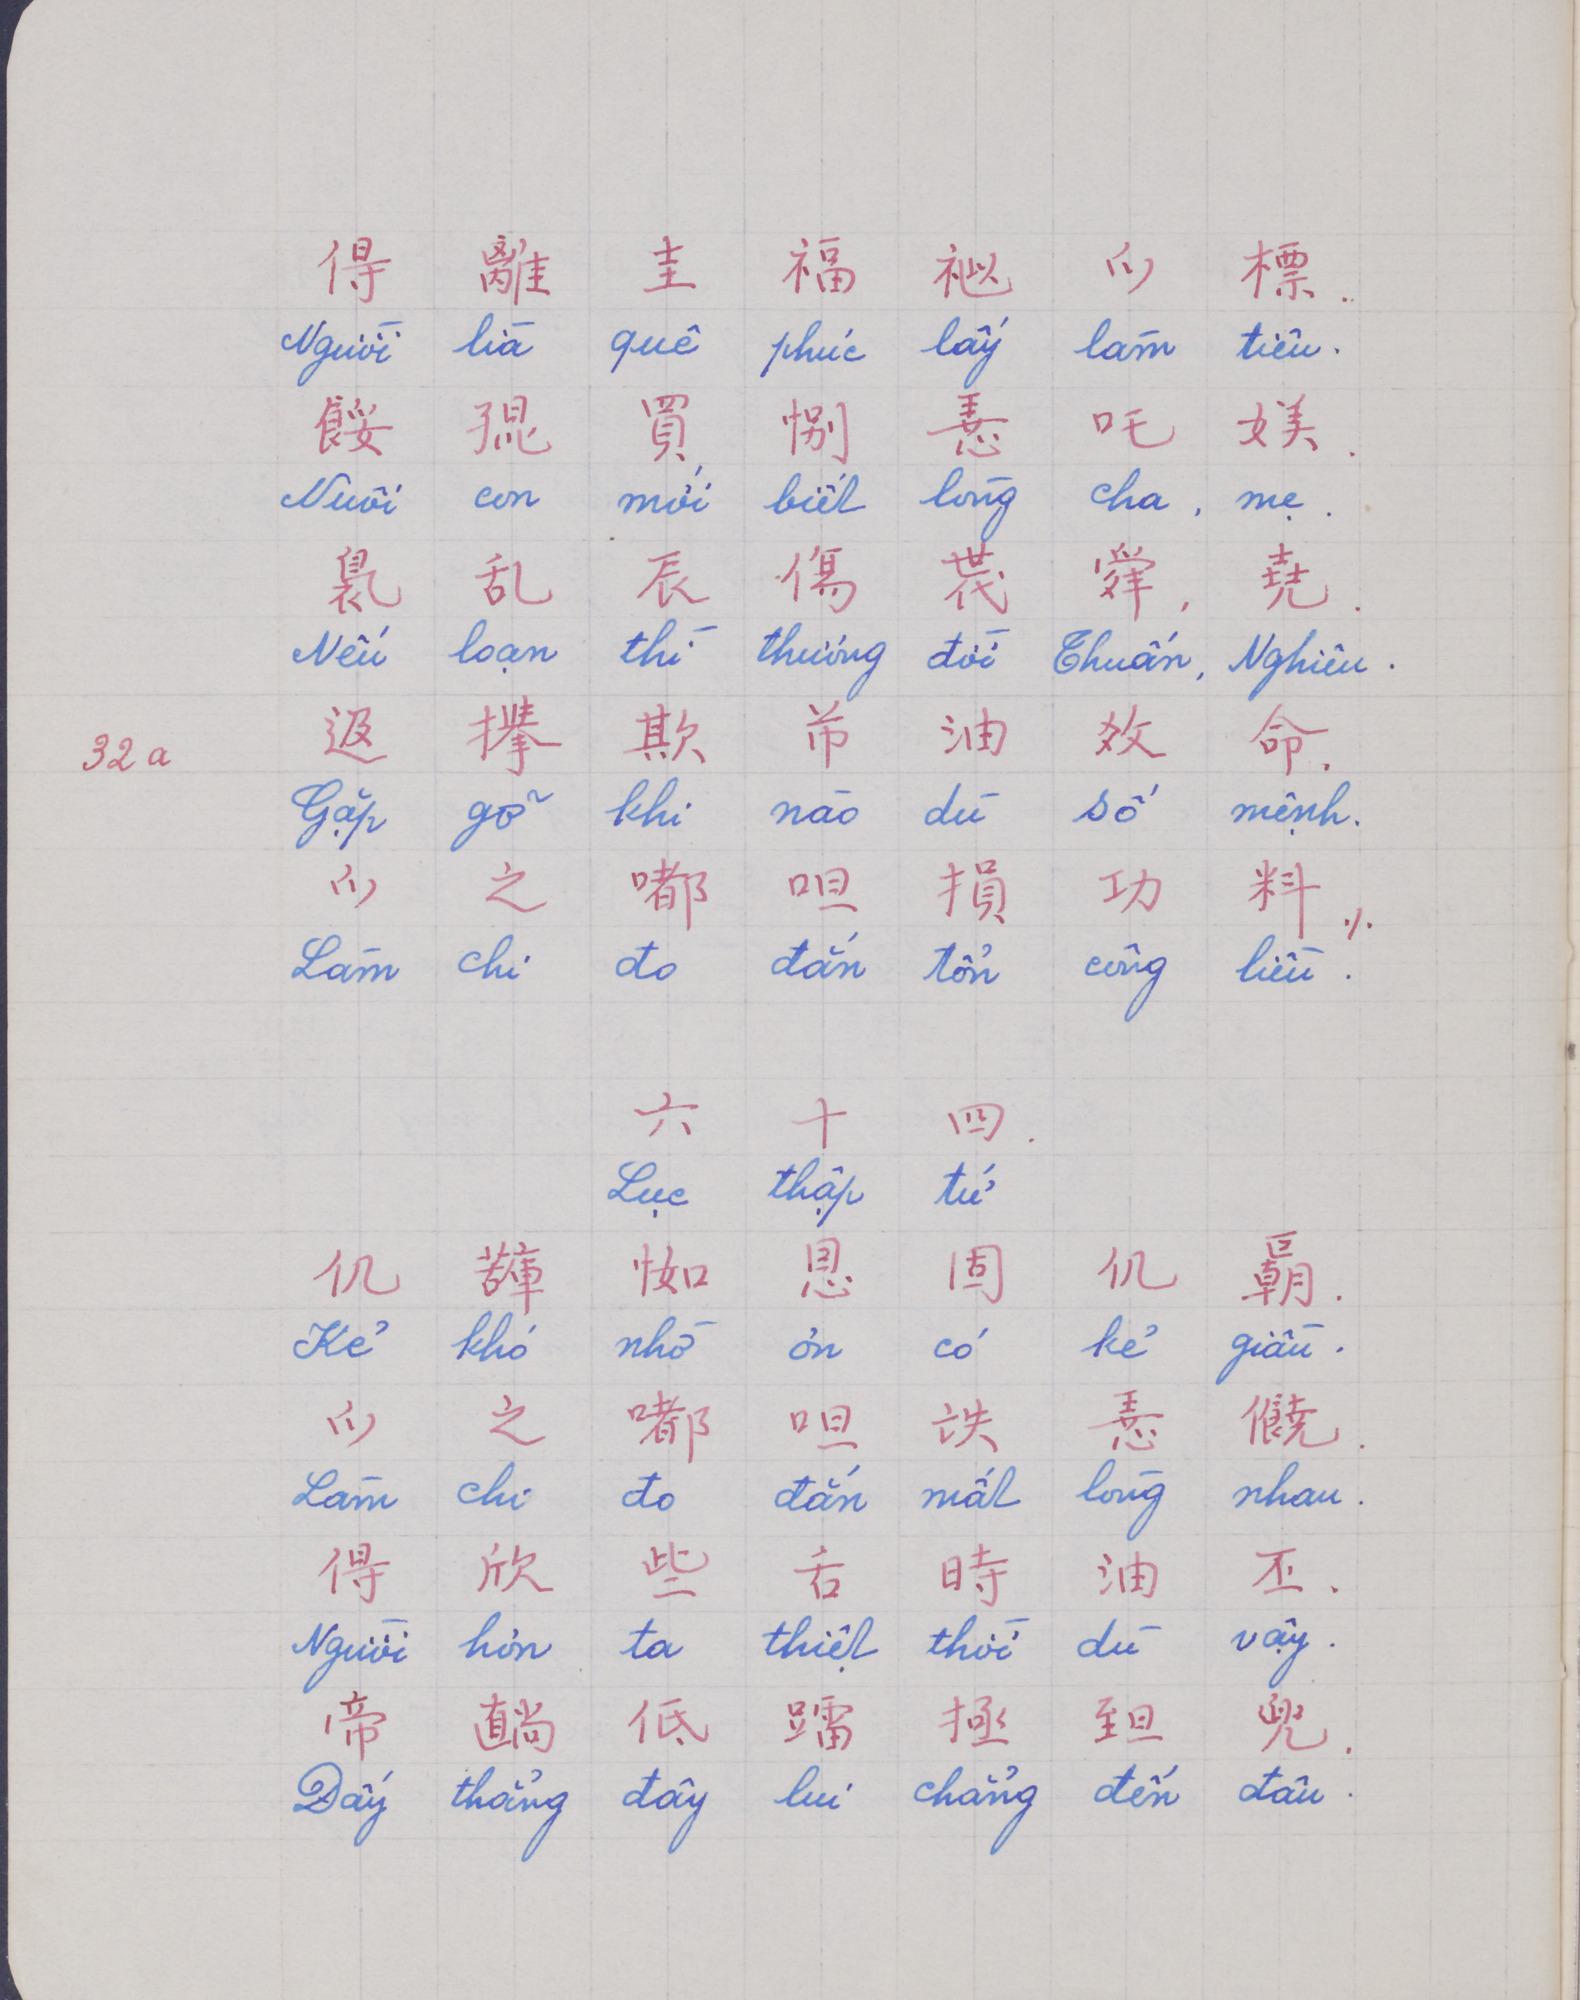 得 離 圭 福 祂 𪜀 標.
Người lìa quê phúc lấy làm tiêu.
餒 𡥵 買 別 𢚸 吒 媄.
Nuôi con mới biết lòng cha, mẹ.
乱 辰 傷 舜, 堯.
Nếu loạn thì thương đời Thuấn, Nghiêu.
32a
欺 芇 油 效 命.
Gặp gỡ khi nào dù số mệnh.
之 嘟 呾 損 功 料
Làm chi đo đắn tổn công liều.
六 十 四.
Lục thập tứ
仉 恩 固 仉
Kẻ khó nhờ ơn có kẻ giầu.
之 嘟 呾 𢚸 饒.
Làm chi đo đắn mất lòng nhau.
得 欣 些 舌 時 油 丕.
Người hơn ta thiệt thời dù vậy.
帝 低 拯 兜.
Đấy thẳng đây lui chẳng đến đâu.